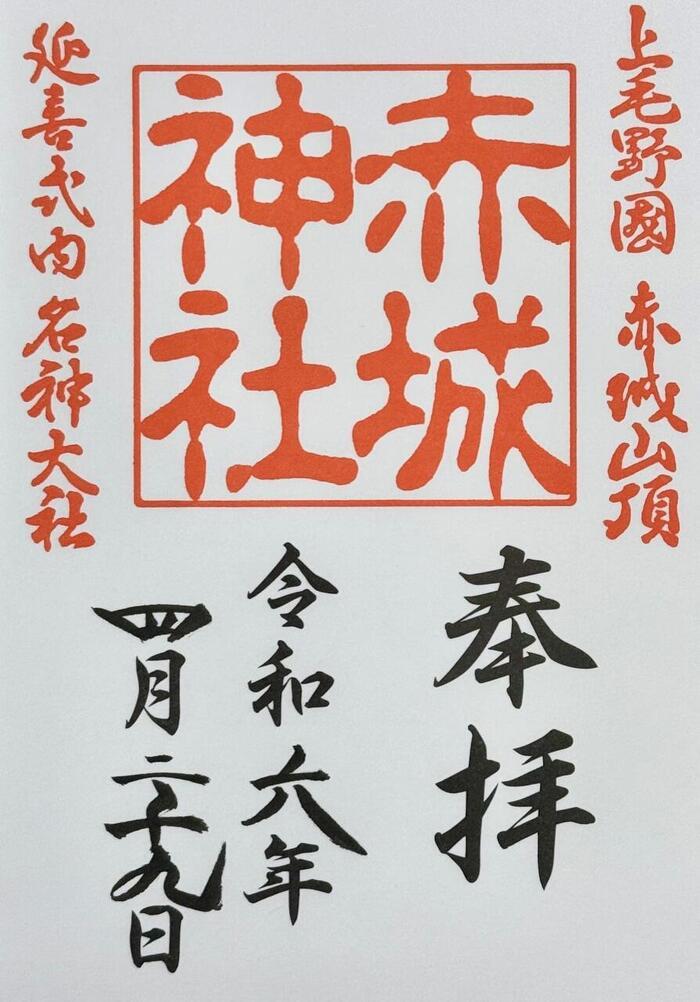 上毛野國 赤城山頂
赤城
神社
延喜式内 名神大社
奉拝
令和六年
四月二十九日